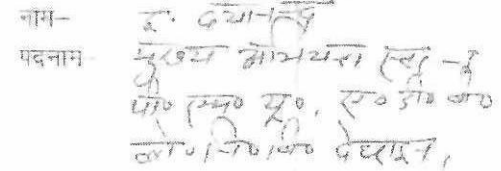 नाम- इ. दयानन्द
पदनाम मुख्य अभियन्ता स्तर-2
पी० एम० यू०, ए० डी० बी०
लो० नि० वि० देहरादून,